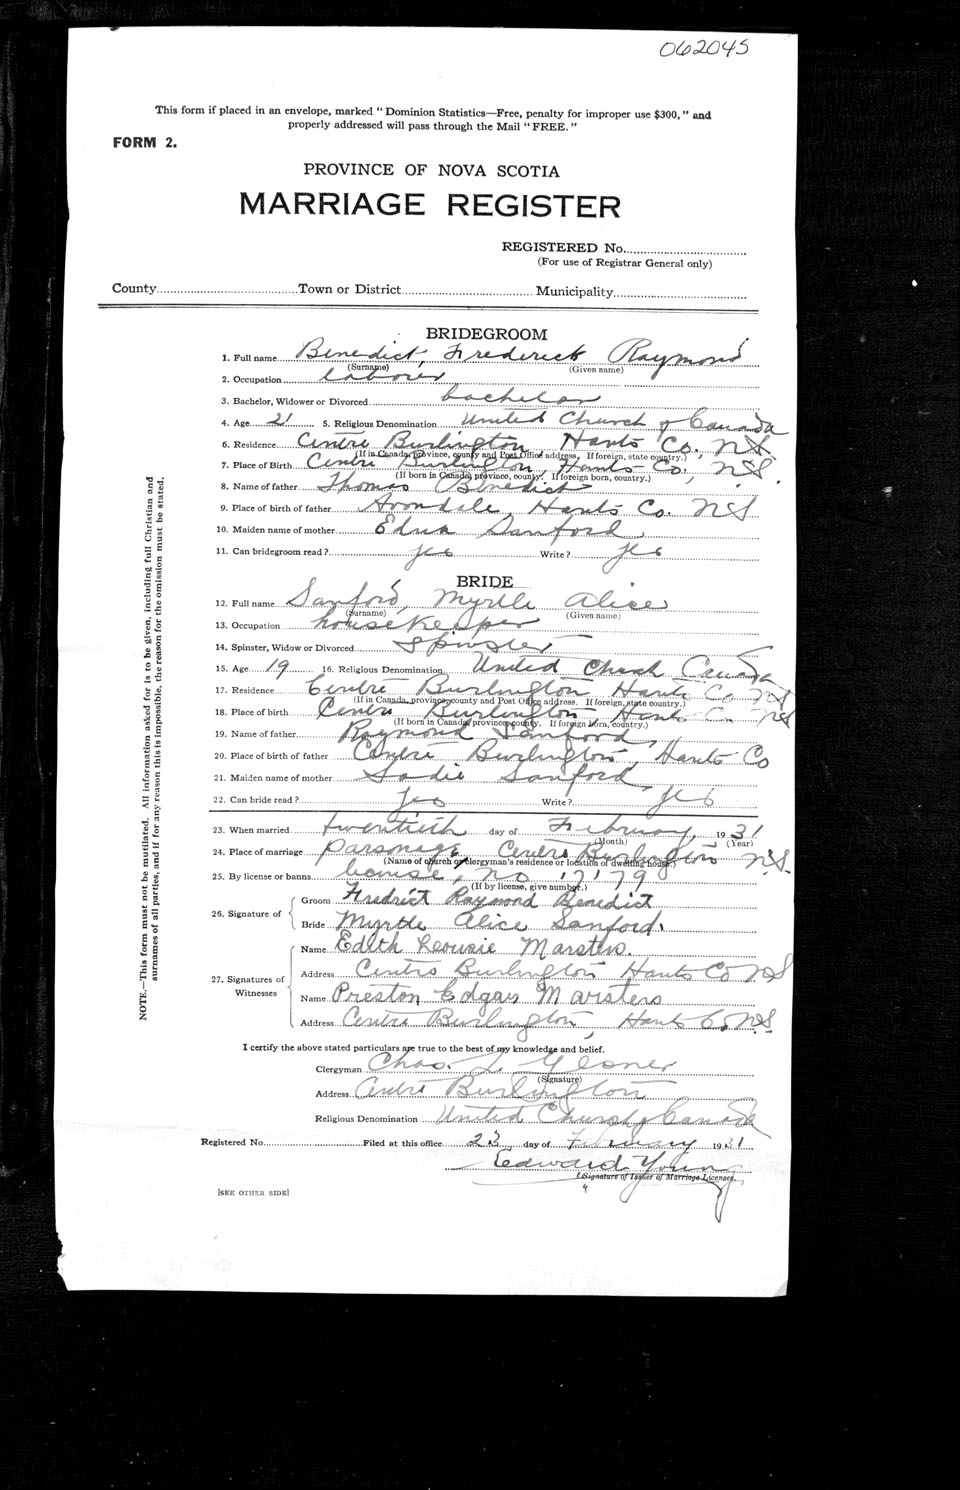 062045
This form if placed in an envelope, marked "Dominion Statistics—Free, penalty for improper use $300," and
properly addressed will pass through the Mail "FREE."
FORM 2.
PROVINCE OF NOVA SCOTIA
MARRIAGE REGISTER
REGISTERED No.
(For use of Registrar General only)
County Town or District Municipality
BRIDEGROOM
1. Full name Benedict, Frederick Raymond
(Surname) (Given name)
2. Occupation laborer
3. Bachelor, Widower or Divorced bachelor
4. Age 21 5. Religious Denomination United Church of Canada
6. Residence Centre Burlington Hants Co., N.S.
(If in Canada, province, county and Post Office address. If foreign, state country.)
7. Place of Birth Centre Burlington, Hants Co., N.S.
(If born in Canada, province, county. If foreign born, country.)
8. Name of father Thomas Benedict
9. Place of birth of father Avondale, Hants Co. N.S.
10. Maiden name of mother Edna Sanford
11. Can bridegroom read? yes Write? yes
BRIDE
12. Full name Sanford, Myrtle Alice
(Surname) (Given name)
13. Occupation housekeeper
14. Spinster, Widow or Divorced Spinster
15. Age 19 16. Religious Denomination United Church Canada
17. Residence Centre Burlington Hants Co N.S.
(If in Canada, province, county and Post Office address. If foreign, state country.)
18. Place of birth Centre Burlington Hants Co N.S.
(If born in Canada, province, county. If foreign born, country.)
19. Name of father Raymond Sanford
20. Place of birth of father Centre Burlington, Hants Co
21. Maiden name of mother Sadie Sanford
22. Can bride read? yes Write? yes
23. When married twentieth day of February, 1931
(Month) (Year)
24. Place of marriage parsonage Centre Burlington N.S.
(Name of church or clergyman's residence or location of dwelling house)
25. By license or banns no 17179
(If by license, give number.)
26. Signature of
Groom Fredrict Raymond Benedict
Bride Myrtle Alice Sanford.
27. Signatures of Witnesses
Name Edith Marsters.
Address Centre Burlington Hants Co N.S.
Name Preston Edgar Marsters
Address Centre Burlington, Hants Co. N.S.
I certify the above stated particulars are true to the best of my knowledge and belief.
Clergyman Chas.
(Signature)
Address Centre Burlington
Religious Denomination United Church of Canada
Registered No. Filed at this office 23 day of February 1931
Edward Young
(Signature of Issuer of Marriage Licenses.
[SEE OTHER SIDE]
NOTE.—This form must not be mutilated. All information asked for is to be given, including full Christian and
surnames of all parties, and if for any reason this is impossible, the reason for the omission must be stated.